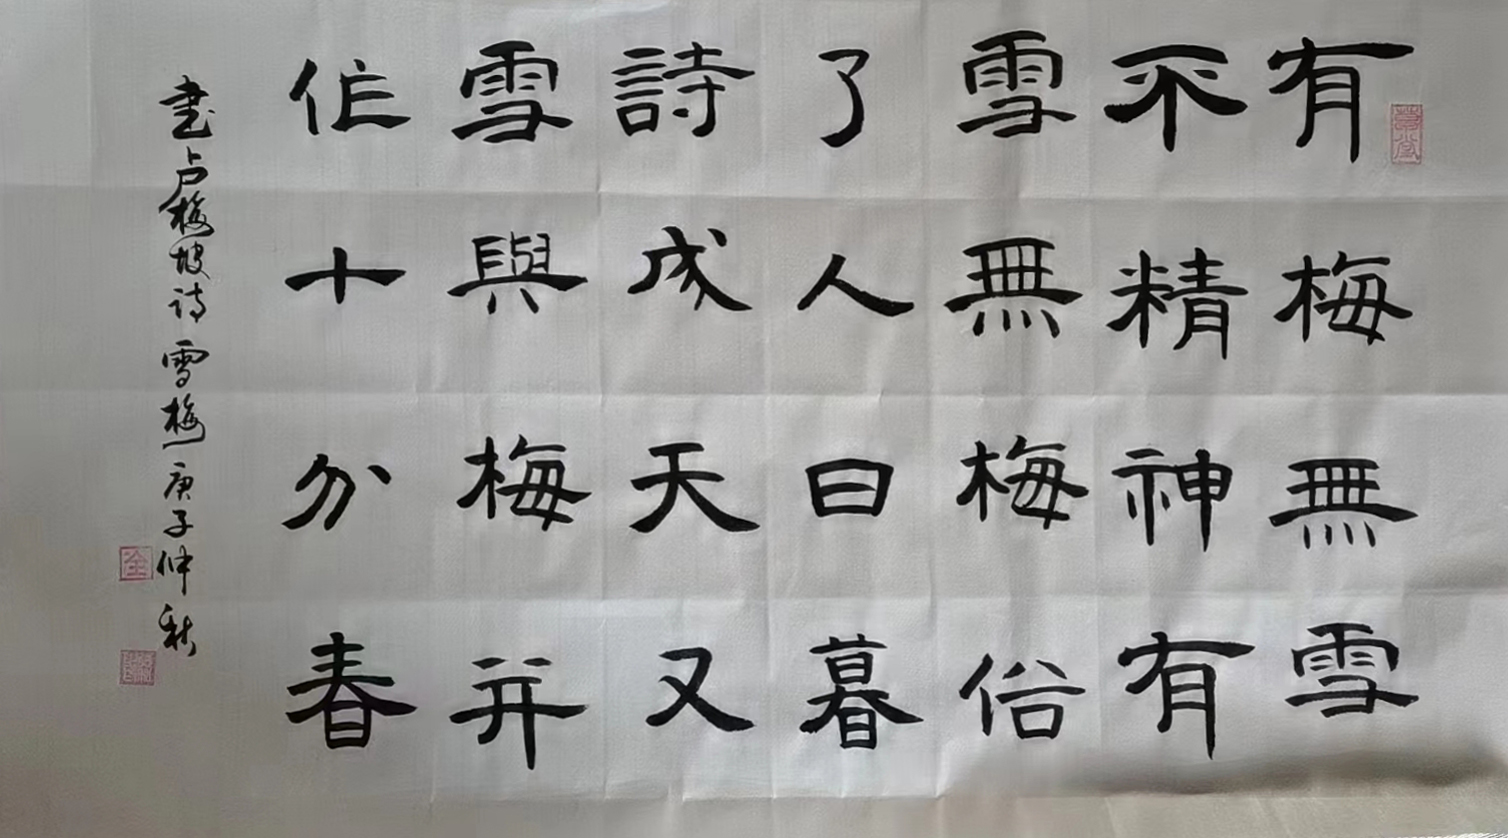 有梅無雪
不精神有
雪無梅俗
了人日暮
詩成天又
雪與梅并
作十分春
书卢梅坡诗雪梅庚子仲秋